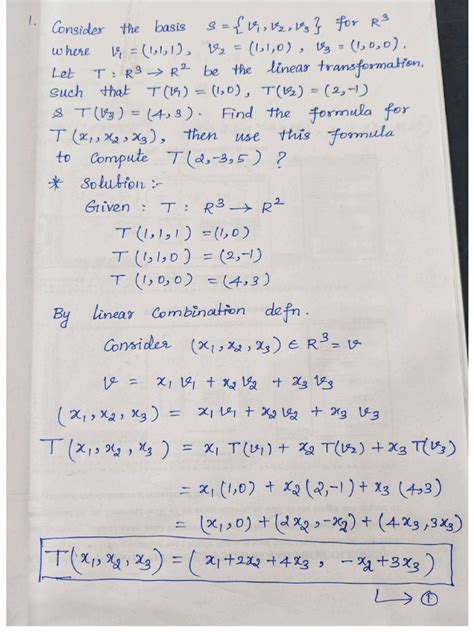 1. Consider the basis S = {v₁, v₂, v₃} for R³
where v₁ = (1,1,1), v₂ = (1,1,0), v₃ = (1,0,0).
Let T : R³ → R² be the linear transformation.
such that T(v₁) = (1,0), T(v₂) = (2,-1)
& T(v₃) = (4,3). Find the formula for
T(x₁, x₂, x₃), then use this formula
to compute T(2,-3,5) ?
* Solution :-
Given : T : R³ → R²
T(1,1,1) = (1,0)
T(1,1,0) = (2,-1)
T(1,0,0) = (4,3)
By linear combination defn.
Consider (x₁, x₂, x₃) ∈ R³ = v
v = x₁v₁ + x₂v₂ + x₃v₃
(x₁, x₂, x₃) = x₁v₁ + x₂v₂ + x₃v₃
T(x₁, x₂, x₃) = x₁T(v₁) + x₂T(v₂) + x₃T(v₃)
= x₁(1,0) + x₂(2,-1) + x₃(4,3)
= (x₁,0) + (2x₂,-x₂) + (4x₃,3x₃)
T(x₁, x₂, x₃) = (x₁+2x₂+4x₃, -x₂+3x₃)
↳ ①